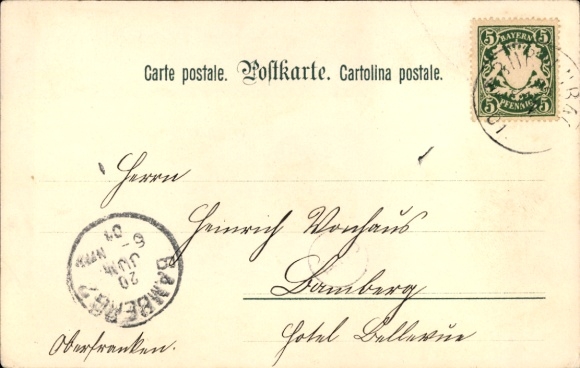 Carte postale. Postkarte. Cartolina postale.
5 BAYERN 5
5 PFENNIG 5
Herrn
Heinrich Vonhaus
Bamberg
Hotel Bellevue
Oberfranken.
BAMBERG 2
20
JUN.
NM
6-
01